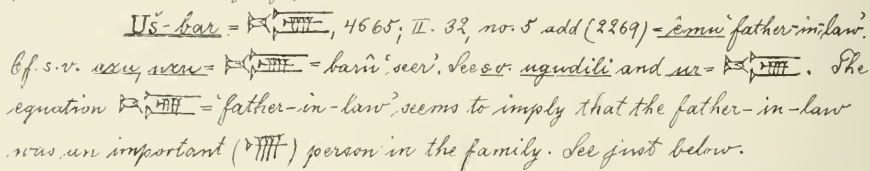 Uš-bar = , 4665; II. 32, no. 5 add (2269) = êmu 'father-in-law'.
Cf. s.v. azu, uzu = = barû 'seer'. See s.v. ugudili and ur = . The
equation = 'father-in-law', seems to imply that the father-in-law
was an important ( ) person in the family. See just below.